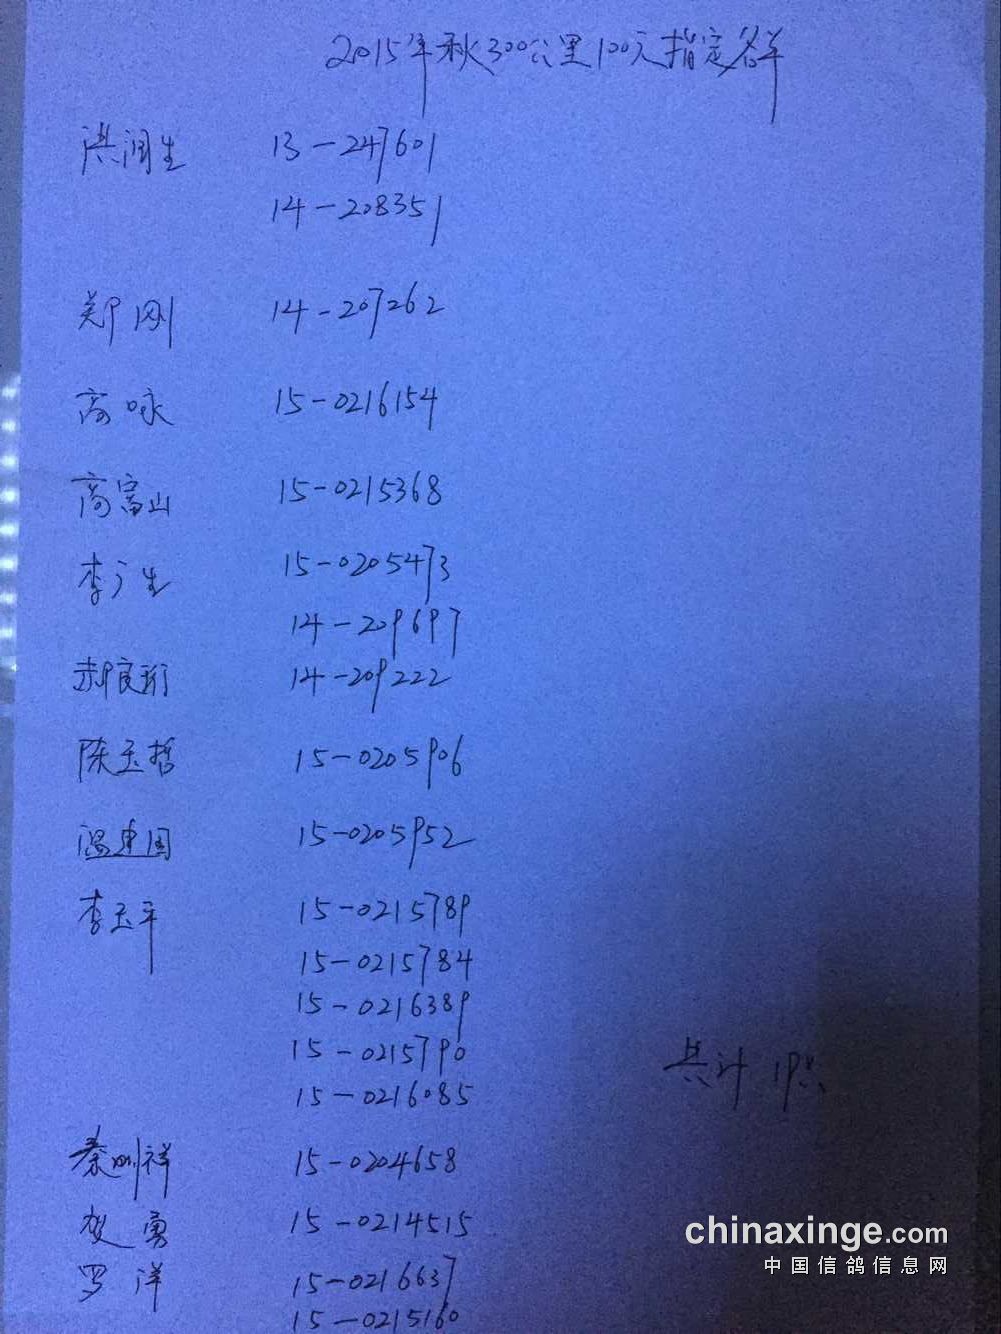 2015年秋300公里100元指定名单
洪润生 13-247601
14-208351
郑刚 14-207262
高咏 15-0216154
高富山 15-0215368
李广生 15-0205473
14-209697
郝良珩 14-209222
陈玉哲 15-0205906
温建国 15-0205952
李玉平 15-0215789
15-0215784
15-0216389
15-0215790
15-0216085
共计19只
秦刚祥 15-0204658
贺勇 15-0214515
罗洋 15-0216637
15-0215160
chinaxinge.com
中国信鸽信息网